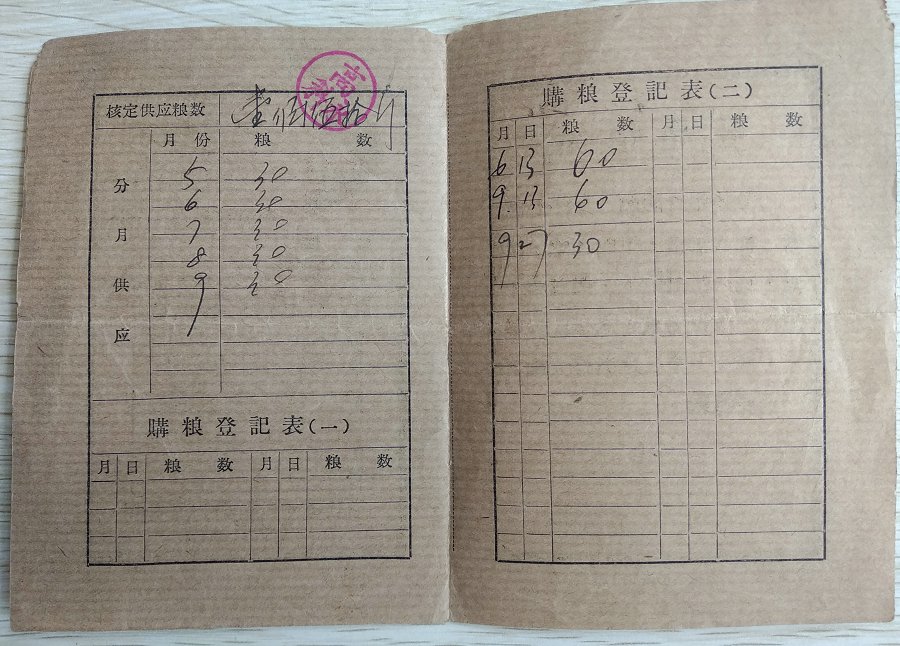 核定供应粮数 壹佰伍拾斤
月份 粮数
分月供应
5 30
6 30
7 30
8 30
9 30
購粮登記表(一)
月 日 粮数 月 日 粮数
購粮登記表(二)
月 日 粮数 月 日 粮数
6 13 60
9. 13 60
9 27 30